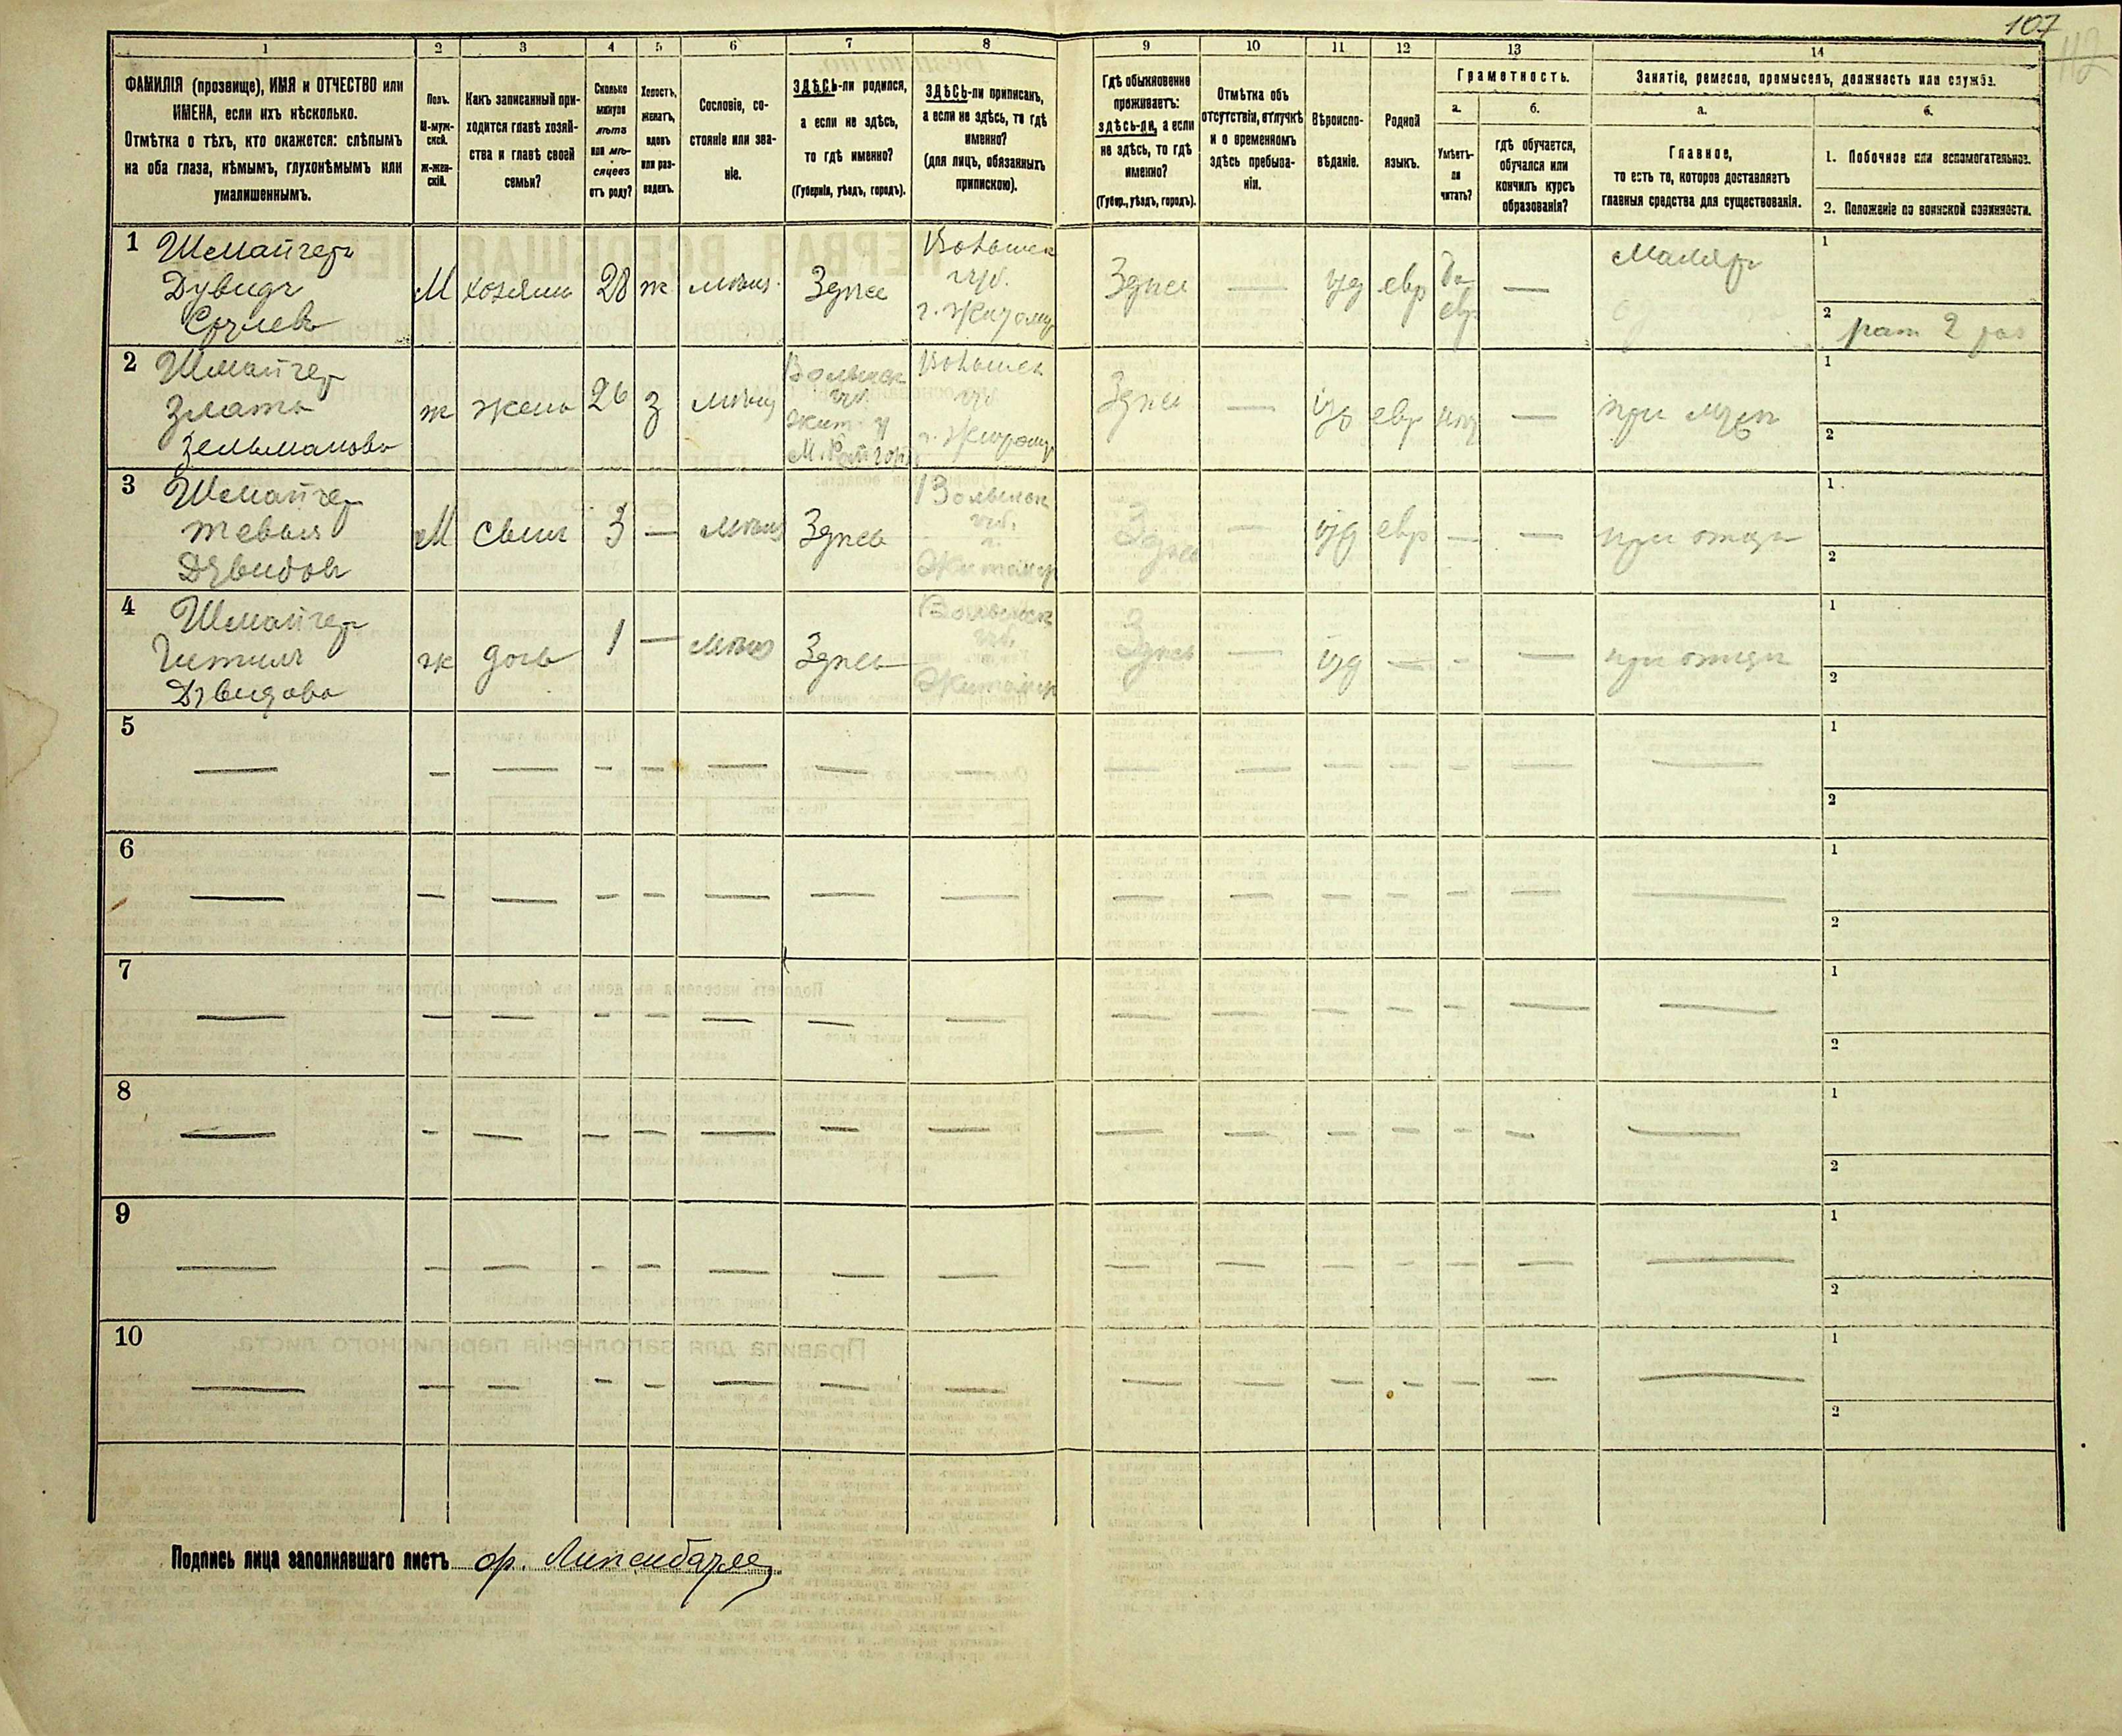 107
112
1 2 3 4 5 6 7 8 9 10 11 12 13 14
ФАМИЛІЯ (прозвище), ИМЯ и ОТЧЕСТВО или
ИМЕНА, если ихъ нѣсколько.
Отмѣтка о тѣхъ, кто окажется: слѣпымъ
на оба глаза, нѣмымъ, глухонѣмымъ или
умалишеннымъ.
Полъ.
М-муж-
ской.
Ж-жен-
скій.
Какъ записанный при-
ходится главѣ хозяй-
ства и главѣ своей
семьи?
Сколько
минуло
лѣтъ
или мѣ-
сяцевъ
отъ роду?
Холостъ,
женатъ,
вдовъ
или раз-
веденъ.
Сословіе, со-
стояніе или зва-
ніе.
ЗДѢСЬ-ли родился,
а если не здѣсь,
то гдѣ именно?
(Губернія, уѣздъ, городъ).
ЗДѢСЬ-ли приписанъ,
а если не здѣсь, то гдѣ
именно?
(для лицъ, обязанныхъ
припискою).
Гдѣ обыкновенно
проживаетъ:
здѣсь-ли, а если
не здѣсь, то гдѣ
именно?
(Губер., уѣздъ, городъ).
Отмѣтка объ
отсутствіи, отлучкѣ
и о временномъ
здѣсь пребыва-
ніи.
Вѣроиспо-
вѣданіе.
Родной
языкъ.
Грамотность.
а.
Умѣетъ-
ли
читать?
б.
гдѣ обучается,
обучался или
кончилъ курсъ
образованія?
Занятіе, ремесло, промыселъ, должность или служба.
а.
Главное,
то есть то, которое доставляетъ
главныя средства для существованія.
б.
1. Побочное или вспомогательное.
2. Положеніе по воинской повинности.
1
Шмайгеръ
Дувидъ
М
хозяинъ
28
ж
мѣщ.
Здѣсь
Волынск
губ.
г. Житомир
Здѣсь
—
іуд
евр
да
евр
—
Маляръ
1
2
рат 2 раз
2
Шмайгер
Злата
Зельманова
ж
жена
26
З
мѣщ
Волынск
губ.
Жит. у
Волынск
губ
г. Житомир
Здѣсь
—
іуд
евр
нѣт
—
при мужѣ
1
2
3
Шмайгер
Тевья
Дувидовъ
М
сынъ
3
—
мѣщ
Здѣсь
Волынск
губ.
г.
Житомир
Здѣсь
—
іуд
евр
—
—
при отцѣ
1
2
4
Шмайгер
Гитля
Дувидова
ж
дочь
1
—
мѣщ
Здѣсь
Волынск
губ.
Житомир
Здѣсь
—
іуд
—
—
—
при отцѣ
1
2
5
— — — — — — — — — — — — — — —
1
2
6
— — — — — — — — — — — — — — —
1
2
7
— — — — — — — — — — — — — — —
1
2
8
— — — — — — — — — — — — — — —
1
2
9
— — — — — — — — — — — — — — —
1
2
10
— — — — — — — — — — — — — — —
1
2
Подпись лица заполнявшаго листъ